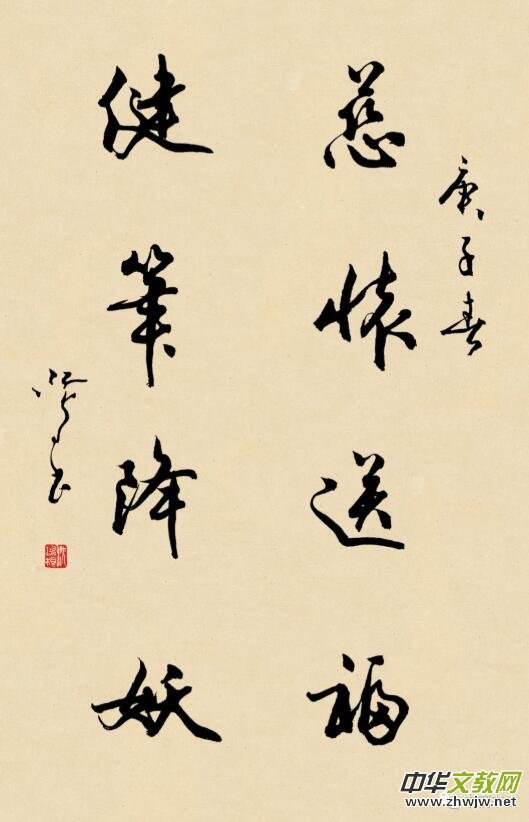 庚子春
慈懷送福
健筆降妖
中华文教网
www.zhwjw.net